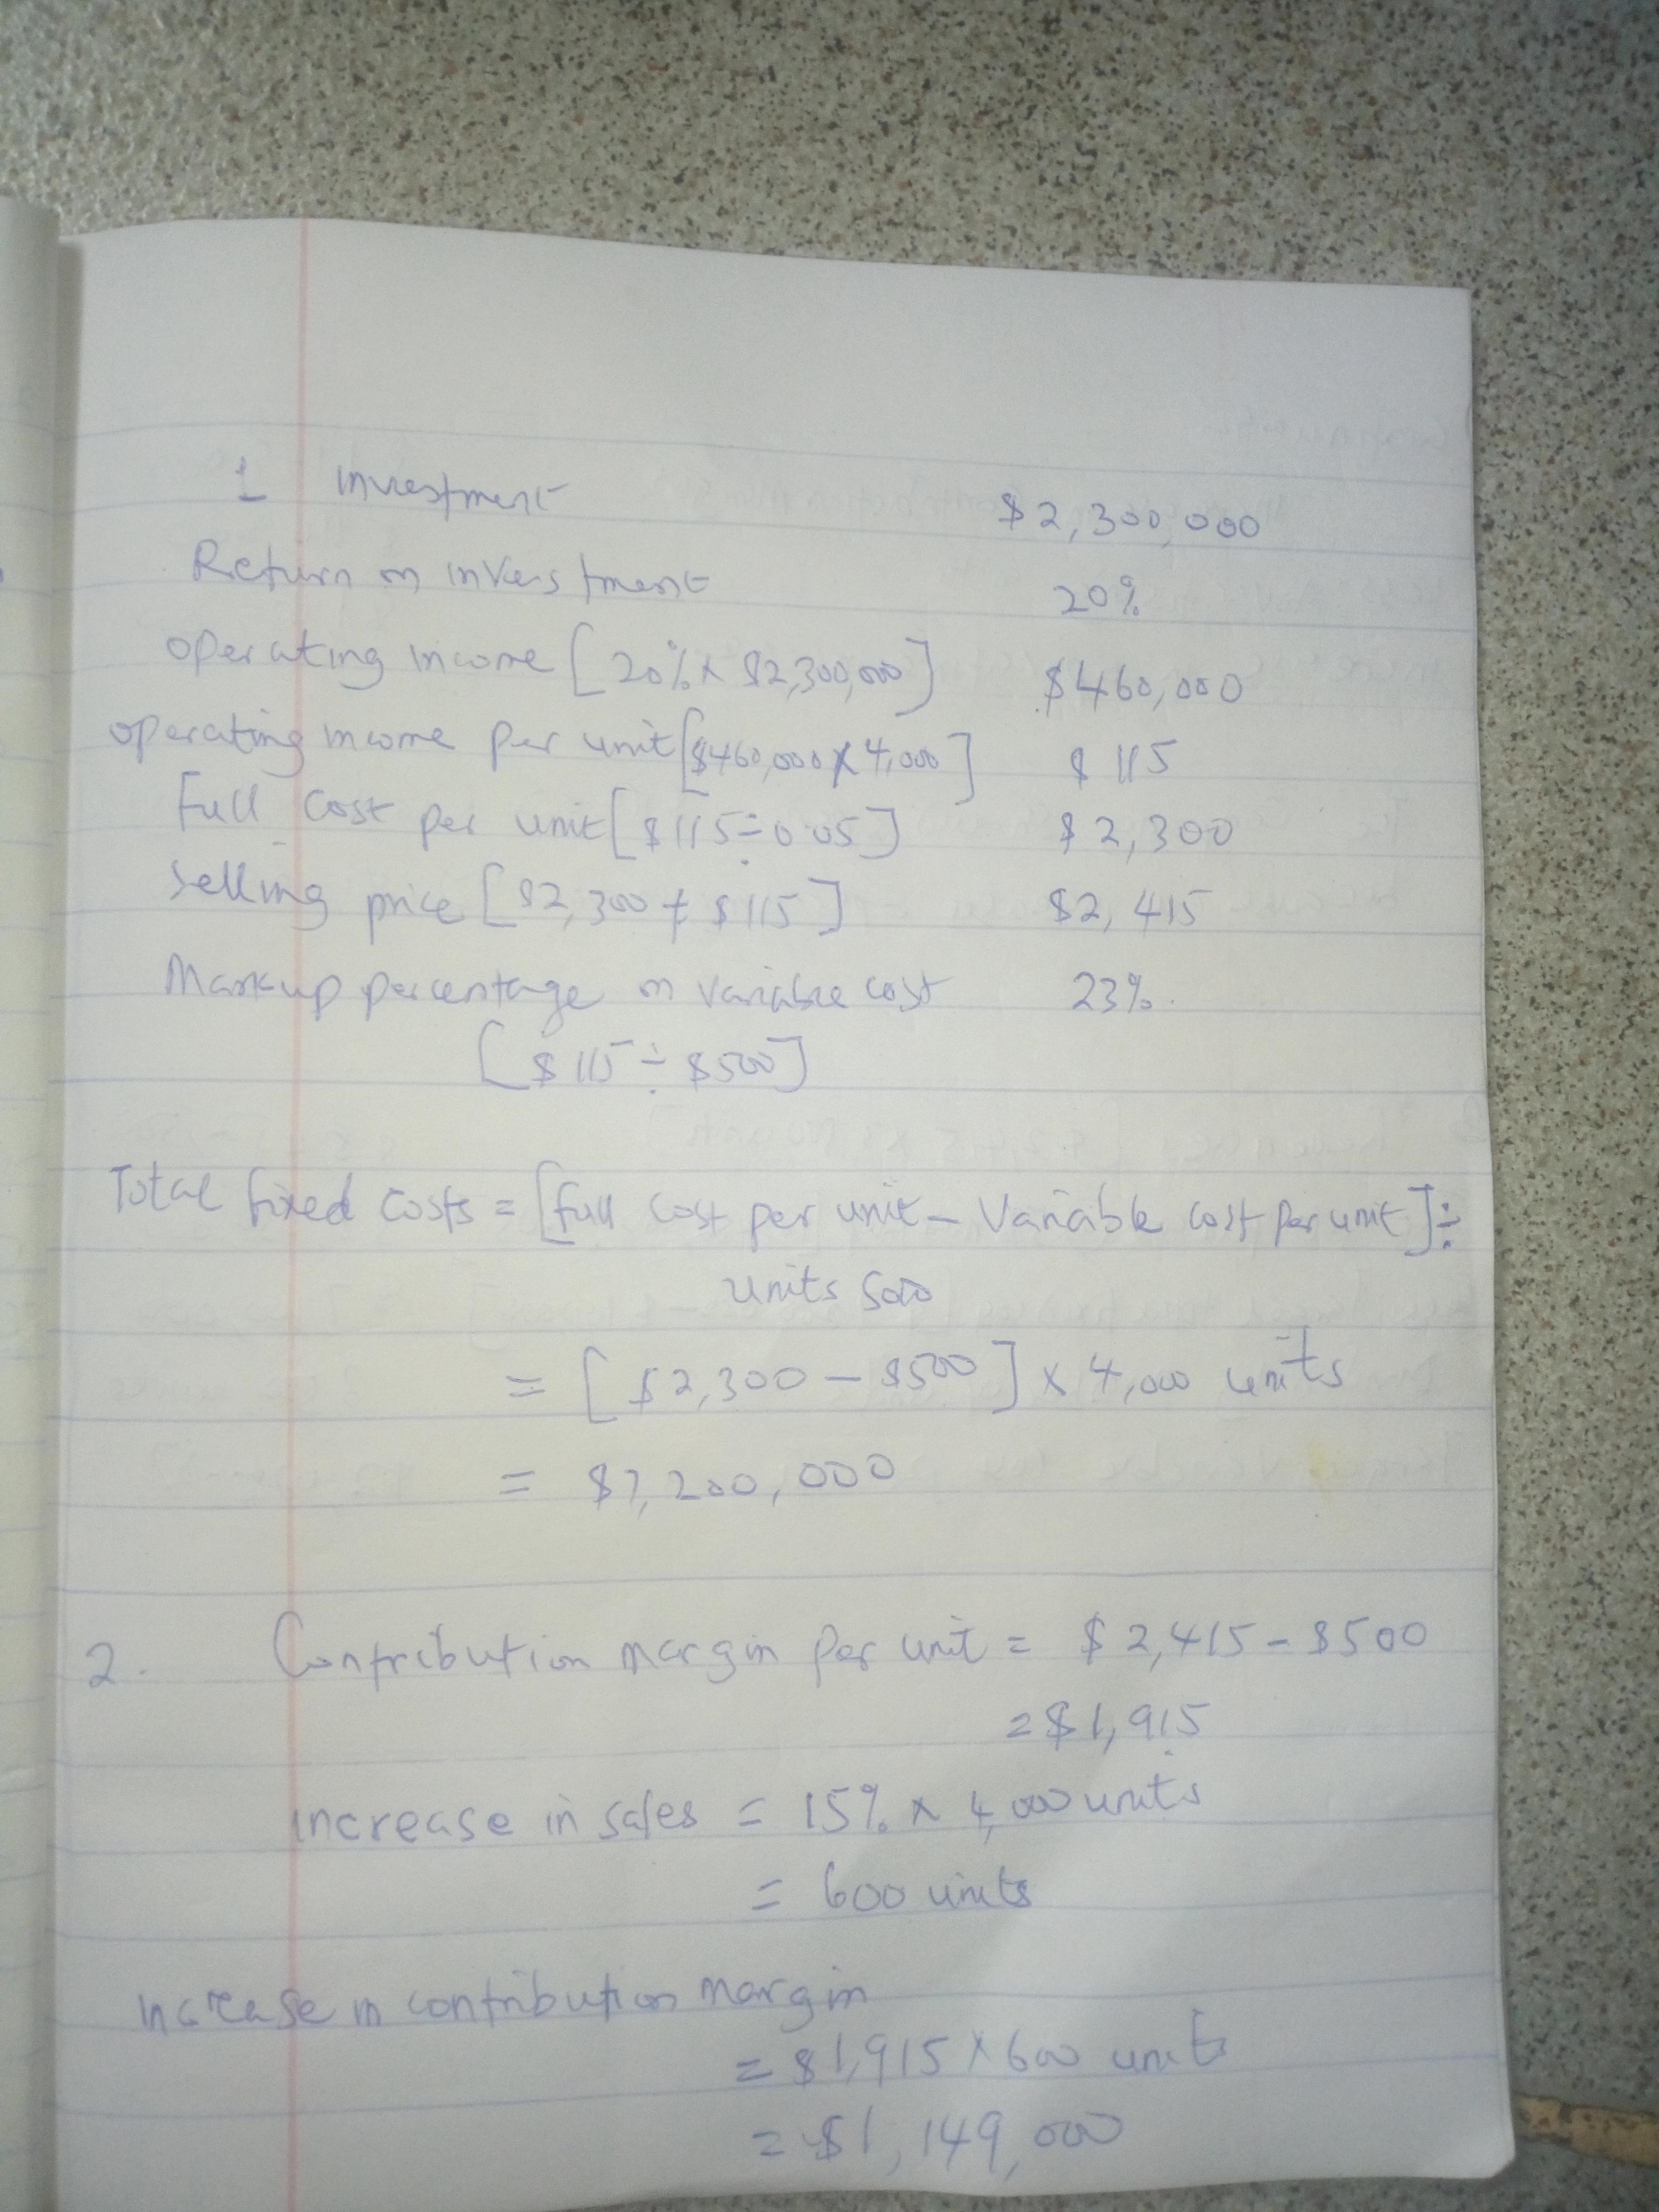 1 Investment $2,300,000
Return on investment 20%
operating income [20% x $2,300,000] $460,000
operating income per unit [$460,000 x 4,000] $115
Full cost per unit [$115 ÷ 0.05] $2,300
Selling price [$2,300 + $115] $2,415
Markup percentage on variable cost 23%.
[$115 ÷ $500]
Total fixed costs = [full cost per unit - Variable cost per unit] ÷
units sold
= [$2,300 - $500] x 4,000 units
= $7,200,000
2. Contribution margin per unit = $2,415 - $500
= $1,915
increase in sales = 15% x 4,000 units
= 600 units
increase in contribution margin
= $1,915 x 600 units
= $1,149,000